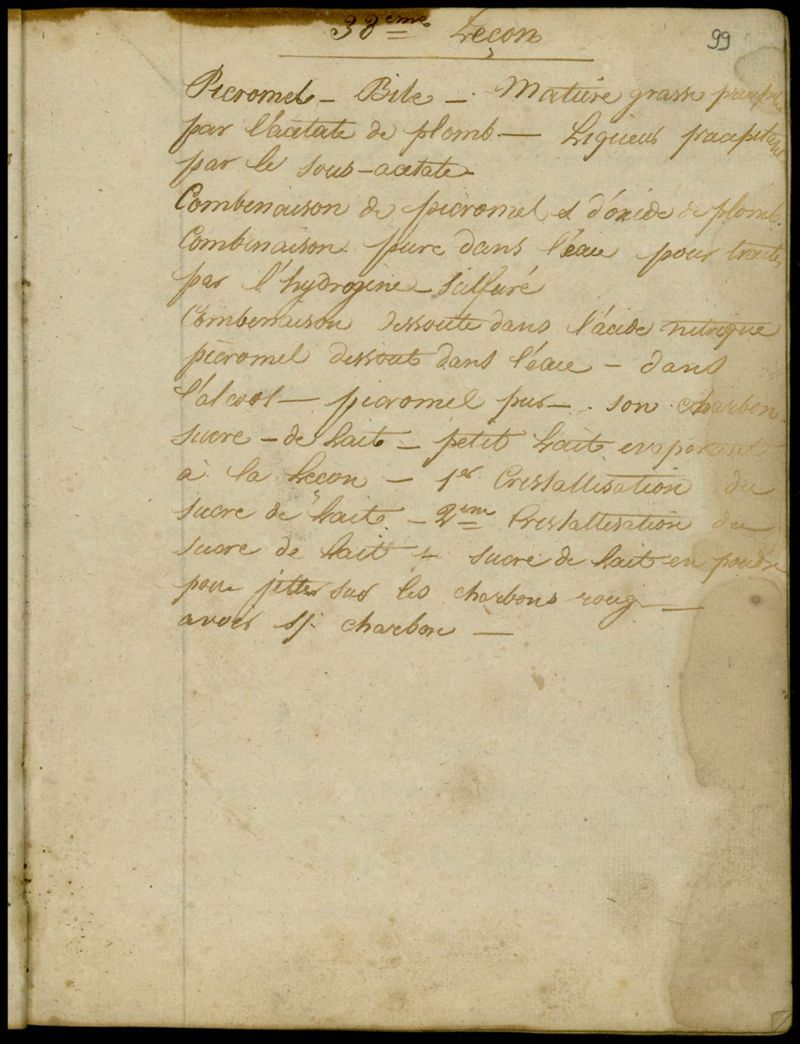 38ème Leçon
99
Picromel – Bile – Matière grasse
par l'acetate de plomb – Liqueur
par le sous-acetate –
Combinaison de picromel & d'oxide de plomb.
Combinaison pure dans l'éau pour traiter
par l'hydrogine-sulfuré
Combinaison dissoute dans l'acide nitrique
picromel dissout dans l'éau – dans
l'alcool – picromel pur – son charbon
sucre – de Lait – petit Lait evaporant
à la Leçon – 1er Cristallisation du
sucre de Lait – 2ème Cristallisation du
sucre de Lait + sucre de Lait en poudre
pour jetter sur les charbons roug –
avoir charbon –